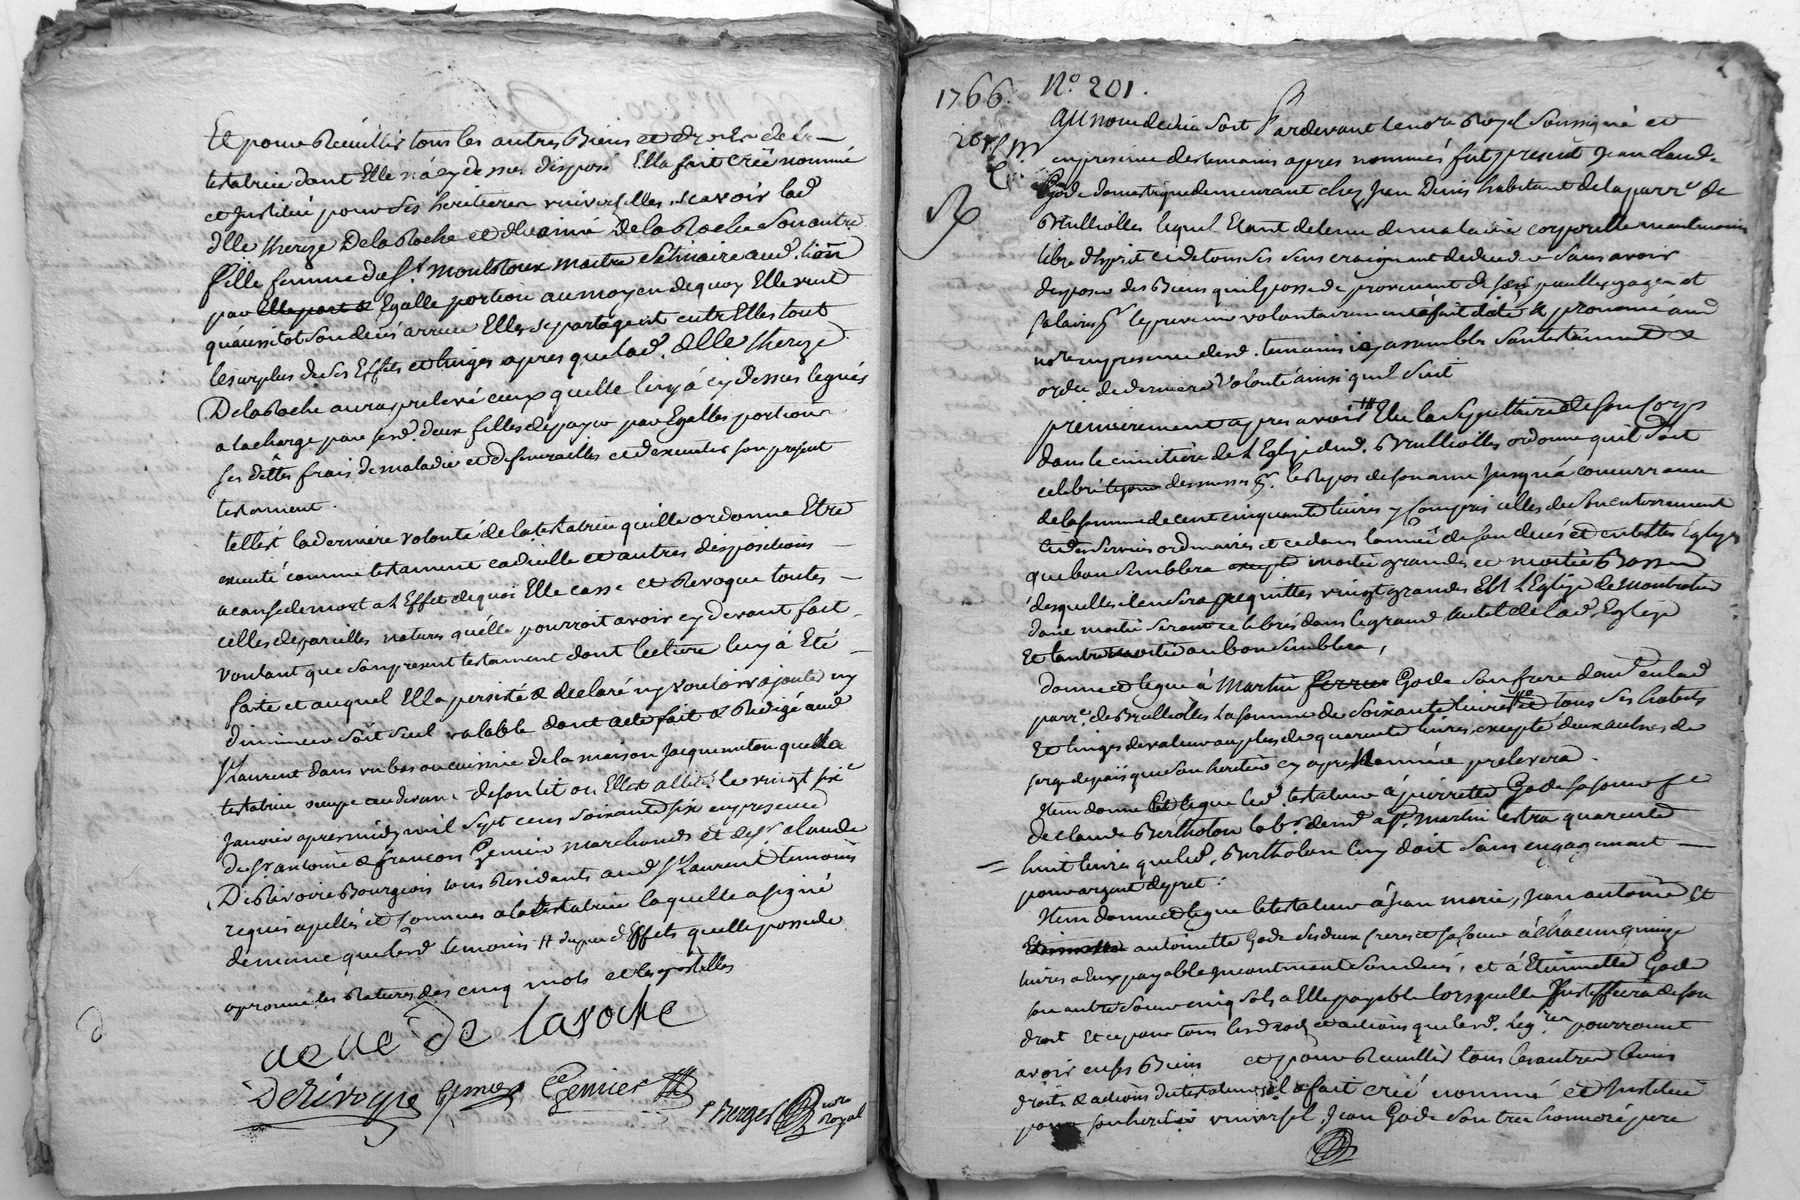 Et pour Recüeillir tous les autres Biens et droits de la
testatrice dont Elle n'a cy dessus disposé Ella fait créé nommé
et Institué pour ses heritieres universelles scavoir lad.
dlle thereze Delaroche et dlle aimée Delaroche son autre
fille femme du Sr. montoloux maitre aud. lion
par Elle part & Egalle portion aumoyen dequoy Elle veut
qu'aussitot son decés arrivé Elles se partagent entr'Elles tout
le surplus de ses Effets et linges apres que lad. delle thereze
Delaroche aura prelevé ceux quelle luy á cy dessus legués
a la charge par sesd. deux filles de payer par Egalles portions
ses dettes frais de maladie et de funerailles et d'executer son present
testament.
tellest la derniere volonté de la testatrice quelle ordonne Etre
executé comme testament codicille et autres dispositions
a cause de mort a l'Effet de quoi Elle casse et Revoque toutes
celles de pareilles natures qu'elle pourroit avoir cy devant fait
voulant que son present testament dont lecture luy à Eté
faite et auquel Ella persisté & declaré ny vouloir ajouter ny
diminuer soit seul valable dont acte fait & Redigé aud.
St. Laurent dans un bas ou cuisine de la maison Jacquemeton que la
testatrice occupe au devant de son lit ou Ellest allitée le vingt six
Janvier apres midy mil sept cens soixante six en presence
de Srs. antoine & françois Gemier marchands et de Sr. claude
DeRivoire Bourgeois tous Residants aud. St. Laurent temoins
requis apellés et sommés a la testatrice laquelle a signé
de meme que lesd. temoins # du peu d'Effets quelle possede
aprouvé les Ratures des cinq mots et les apostilles
veuve de laroche
Derivoyre Gemier Gemier
Berger nore
Royal
1766. No. 201.
Au nom de dieu soit Pardevant le nore Royal soussigné et
en presence des temoins apres nommés fut present Jean claude
Gode domestique demeurant chez Jean Denis habitant de la parre. de
Brullioles lequel Etant detenu de maladie corporelle neantmoins
libre d'Esprit et de tous ses sens craignant de deceder sans avoir
disposé des Biens quil possede provenent de ses gages et
salaires pr. le prevenir volontairement à fait dicté & prononcé aud.
nore en presence desd. temoins icy assemblés son testament &
ordce. de derniere volonté ainsi quil suit
premierement apres avoir Elu la sepulture de son corps
dans le cimitiere de l'Eglise dud. Brullioles ordonne quil soit
celebré des messes pr. le repos de son ame jusqu'à concurrance
de la somme de cent cinquante livres y compris celles de son enterrement
et des services ordinaires et ce dans l'année de son decés et en telles Eglises
que bon semblera moitié grandes et moitié Basses
desquelles il en sera vingt grandes En l'Eglise de Montrotier
dont moitié seront celebrés dans le grand Autel de lad. Eglise
Et l'autre moitié ou bon semblera,
donne et legue á Martin Gode son frere demt. en lad.
parre. de Brullioles la somme de soixante livres et tous ses habits
Et linges de valeur au plus de quarente livres, excepté deux aulnes de
serge de païs que son heritier cy apres Nommé prelevera.
Item donne Et legue led. testateur á pierrette Gode sa soeur fe.
de claude Bertholon labr. demt. a St. Martin lestra quarente
huit livres que led. Bertholon luy doit sans engagement
pour argent de pret.
Item donne et legue le testateur à Jean marie, Jean antoine Et
antoinette Gode ses deux freres et sa soeur à chacun quinze
livres a Eux payable incontinent son decés, et à Etiennette Gode
son autre soeur cinq sols a Elle payable lorsquelle Justiffiera de son
droit Et ce pour tous les droits et actions que lesd. legres. pourroient
avoir en ses Biens et pour Recüeillir tous les autres biens
droits & actions du testateur il a fait créé nommé et Institué
pour son heritier universel Jean Gode son tres honnoré pere